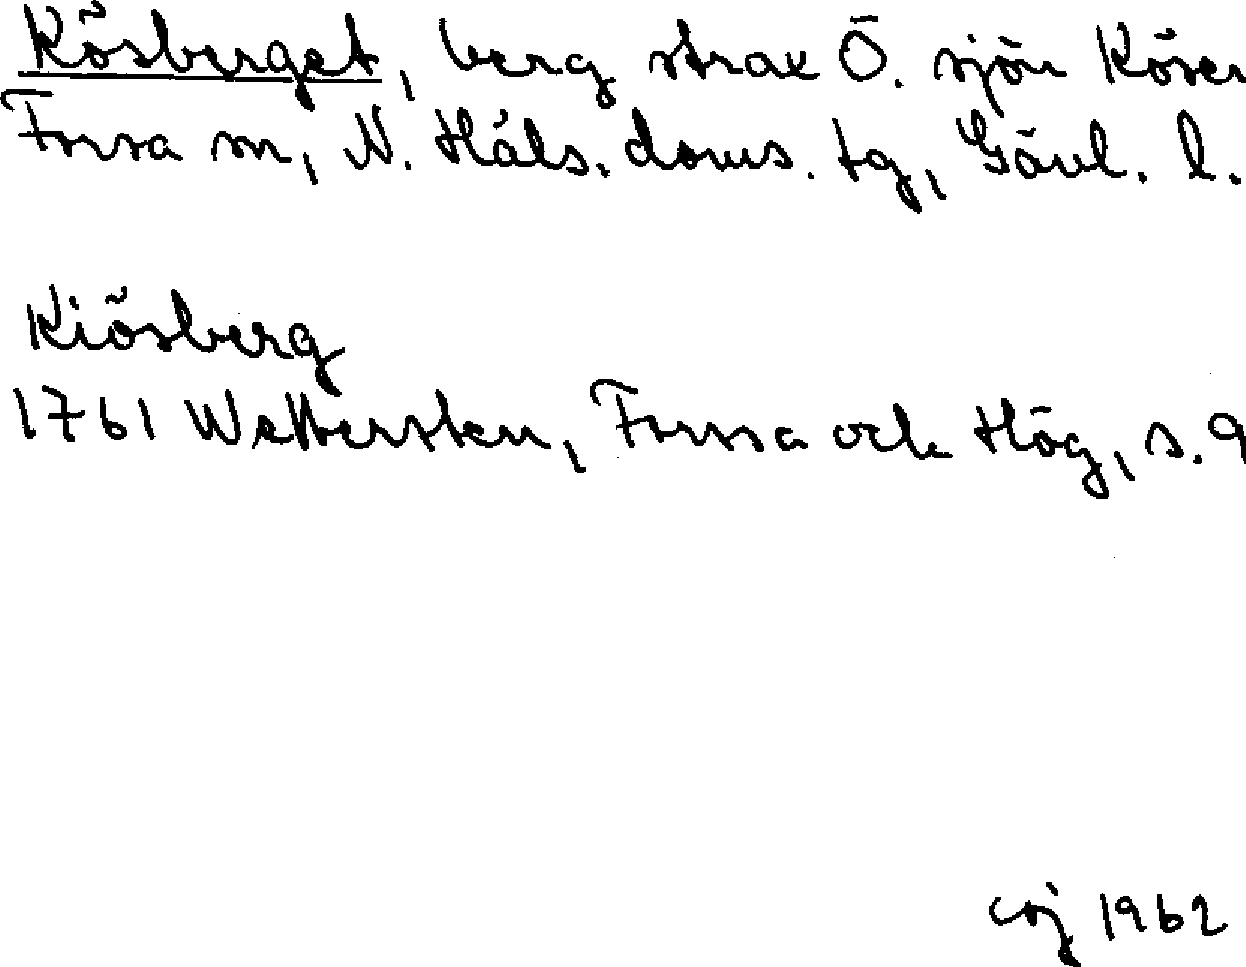 Kösberget, berg strax Ö. sjön Kösen
Forsa sn, N. Häls. doms. tg, Gävl. l.
Kiösberg
1761 Wettersten, Forssa och Hög, s. 9
coj 1962